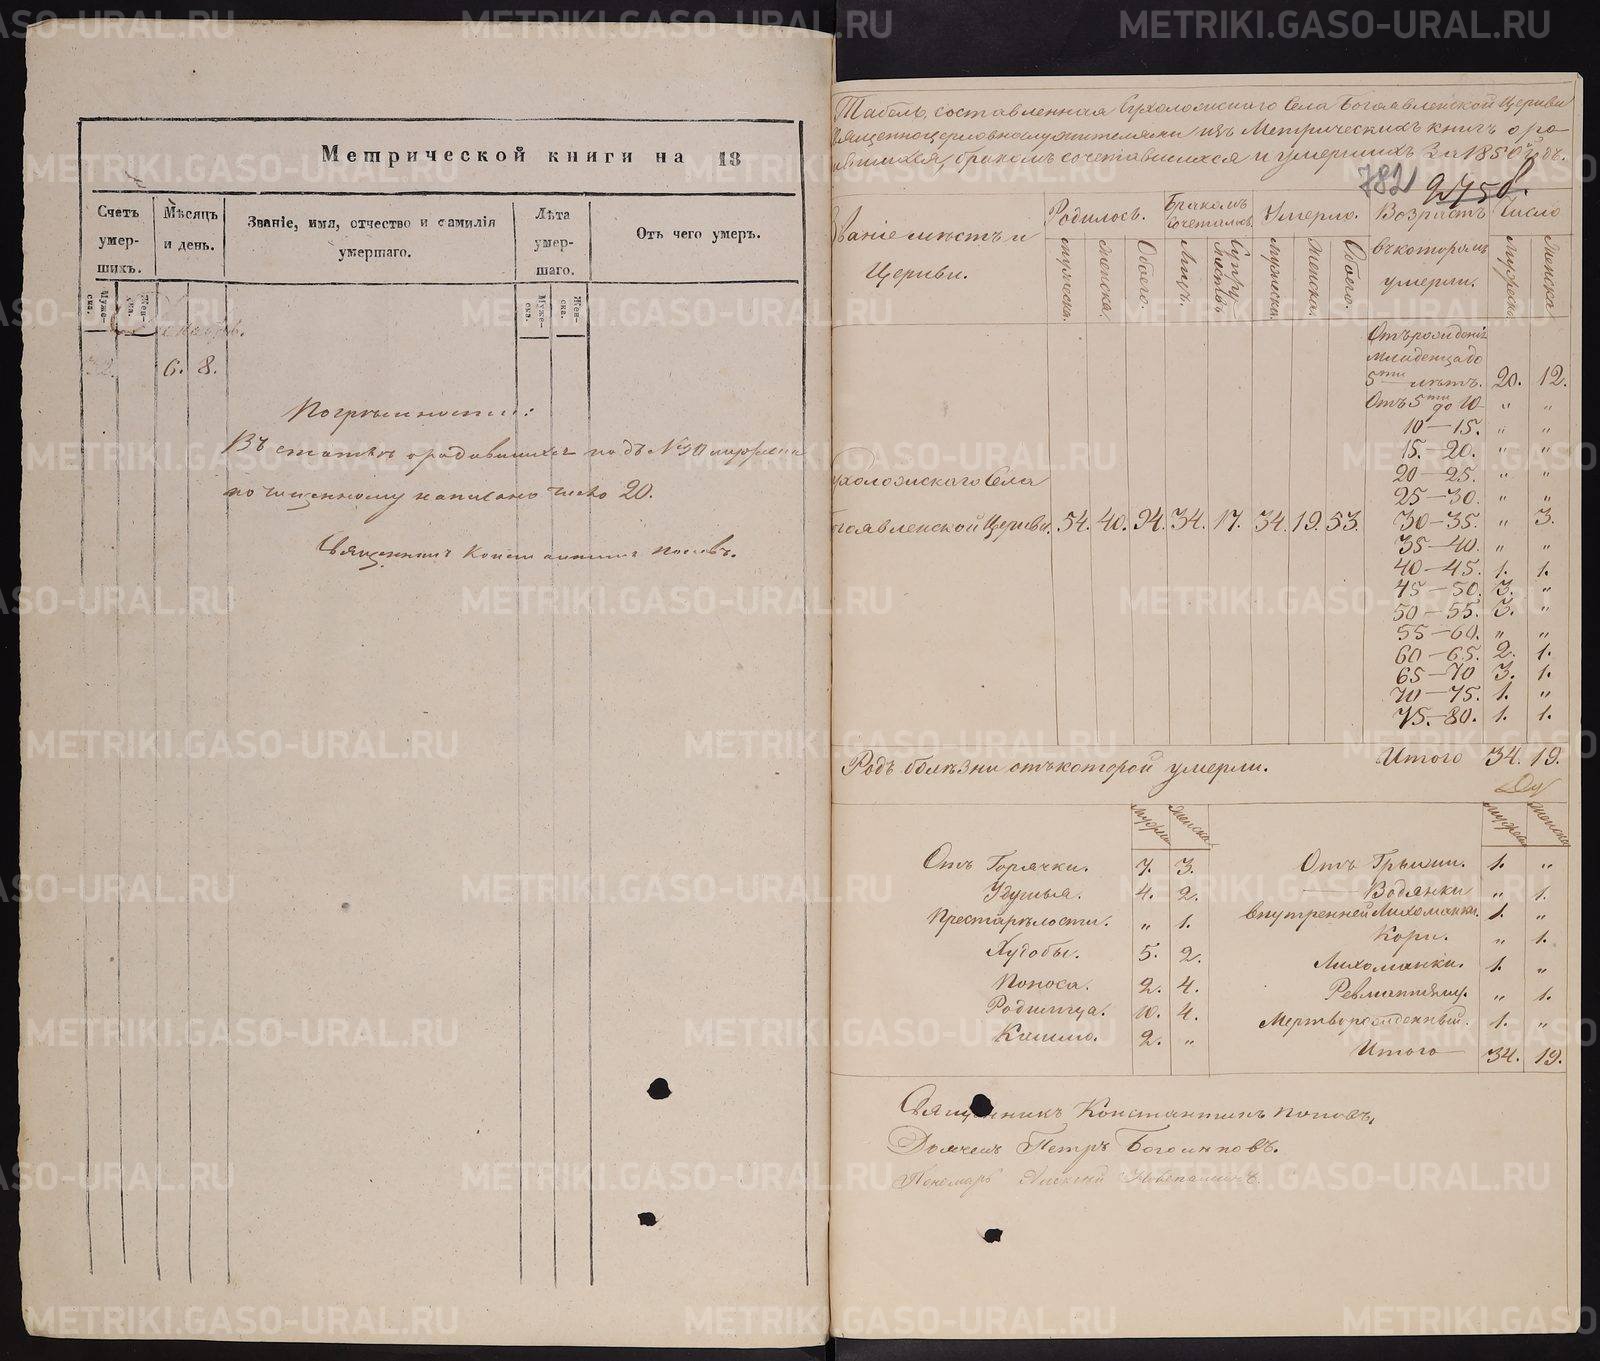 Метрической книги на 18
Счетъ умер-шихъ.
Мѣсяцъ и день.
Званіе, имя, отчество и фамилія умершаго.
Лѣта умер-шаго.
Отъ чего умеръ.
Муже-ска.
Жен-ска.
Муже-ска.
Жен-ска.
6. 8.
Погрѣшности:
Въ статьѣ о родившихся подъ №30 мужска
по чищенному написано число 20.
Священникъ Константинъ Поповъ.
Табель, составленная Сухоложскаго Села Богоявленской Церкви
священноцерковнослужителями изъ Метрическихъ книгъ о ро-
дившихся, бракомъ сочетавшихся и умершихъ за 1850й годъ.
782
275
Званіе мѣстъ и Церкви.
Родилось.
Бракомъ сочеталось.
Умерло.
Возрастъ въ которомъ умерли.
Число
мужеска.
женска.
Обоего.
Лицъ.
Супружествъ
мужеска.
женска.
Обоего.
мужеска.
женска.
Отъ рожденія
младенца до
5ти лѣтъ. 20. 12.
Отъ 5ти до 10 " "
10–15. " "
15–20. " "
20–25. " "
25–30. " "
Сухоложскаго Села
Богоявленской Церкви. 54. 40. 94. 34. 17. 34. 19. 53. 30–35. " 3.
35–40. " "
40–45. 1. 1.
45–50. 3. "
50–55. 3. "
55–60. " "
60–65. 2. 1.
65–70 3. 1.
70–75. 1. "
75–80. 1. 1.
Родъ болѣзни отъ которой умерли. Итого 34. 19.
мужска женска
мужска женска
Отъ Горячки. 7. 3. Отъ Грыжи. 1. "
Удушья. 4. 2. — Водянки " 1.
Престарѣлости. " 1. внутренней Лихоманки. 1. "
Худобы. 5. 2. Кори. " 1.
Поноса. 2. 4. Лихоманки. 1. "
Родимца. 10. 4. Ревматизму. " 1.
Кашлю. 2. " Мертворожденный. 1. "
Итого 34. 19.
Священникъ Константинъ Поповъ,
Дьячекъ Петръ Богомоловъ.
Пономарь Алексей
METRIKI.GASO-URAL.RU